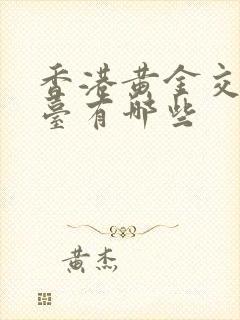 香港黄金交
臺有哪些
黄杰